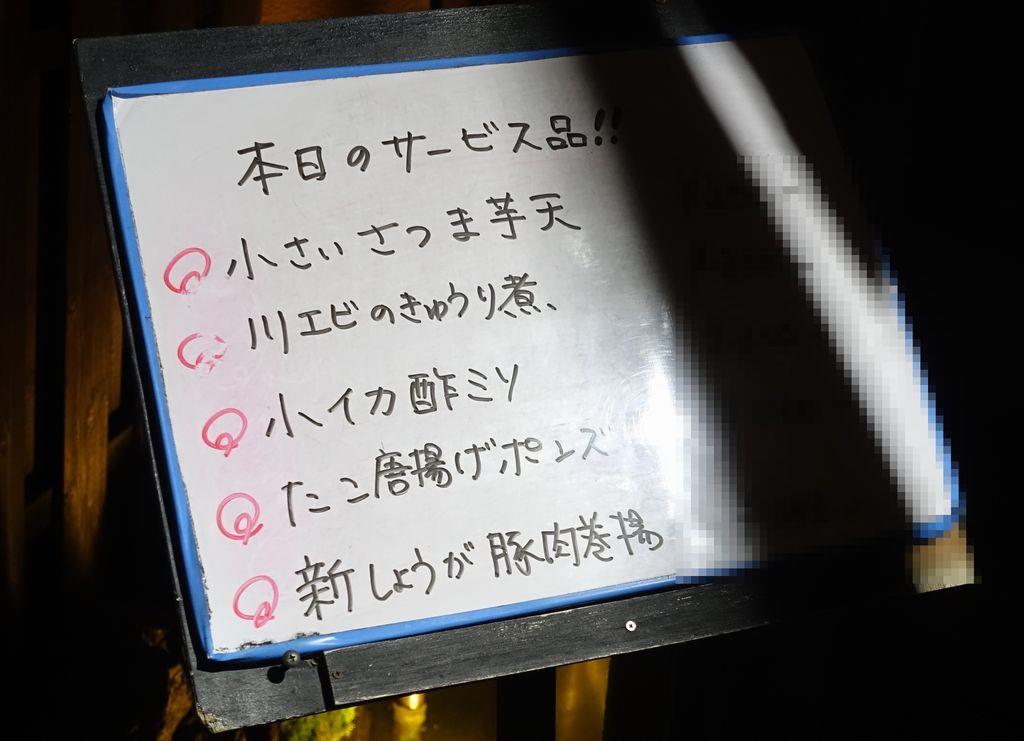 本日のサービス品!!
小さいさつま芋天
川エビのきゅうり煮、
小イカ酢ミソ
たこ唐揚げポンズ
新しょうが豚肉巻揚